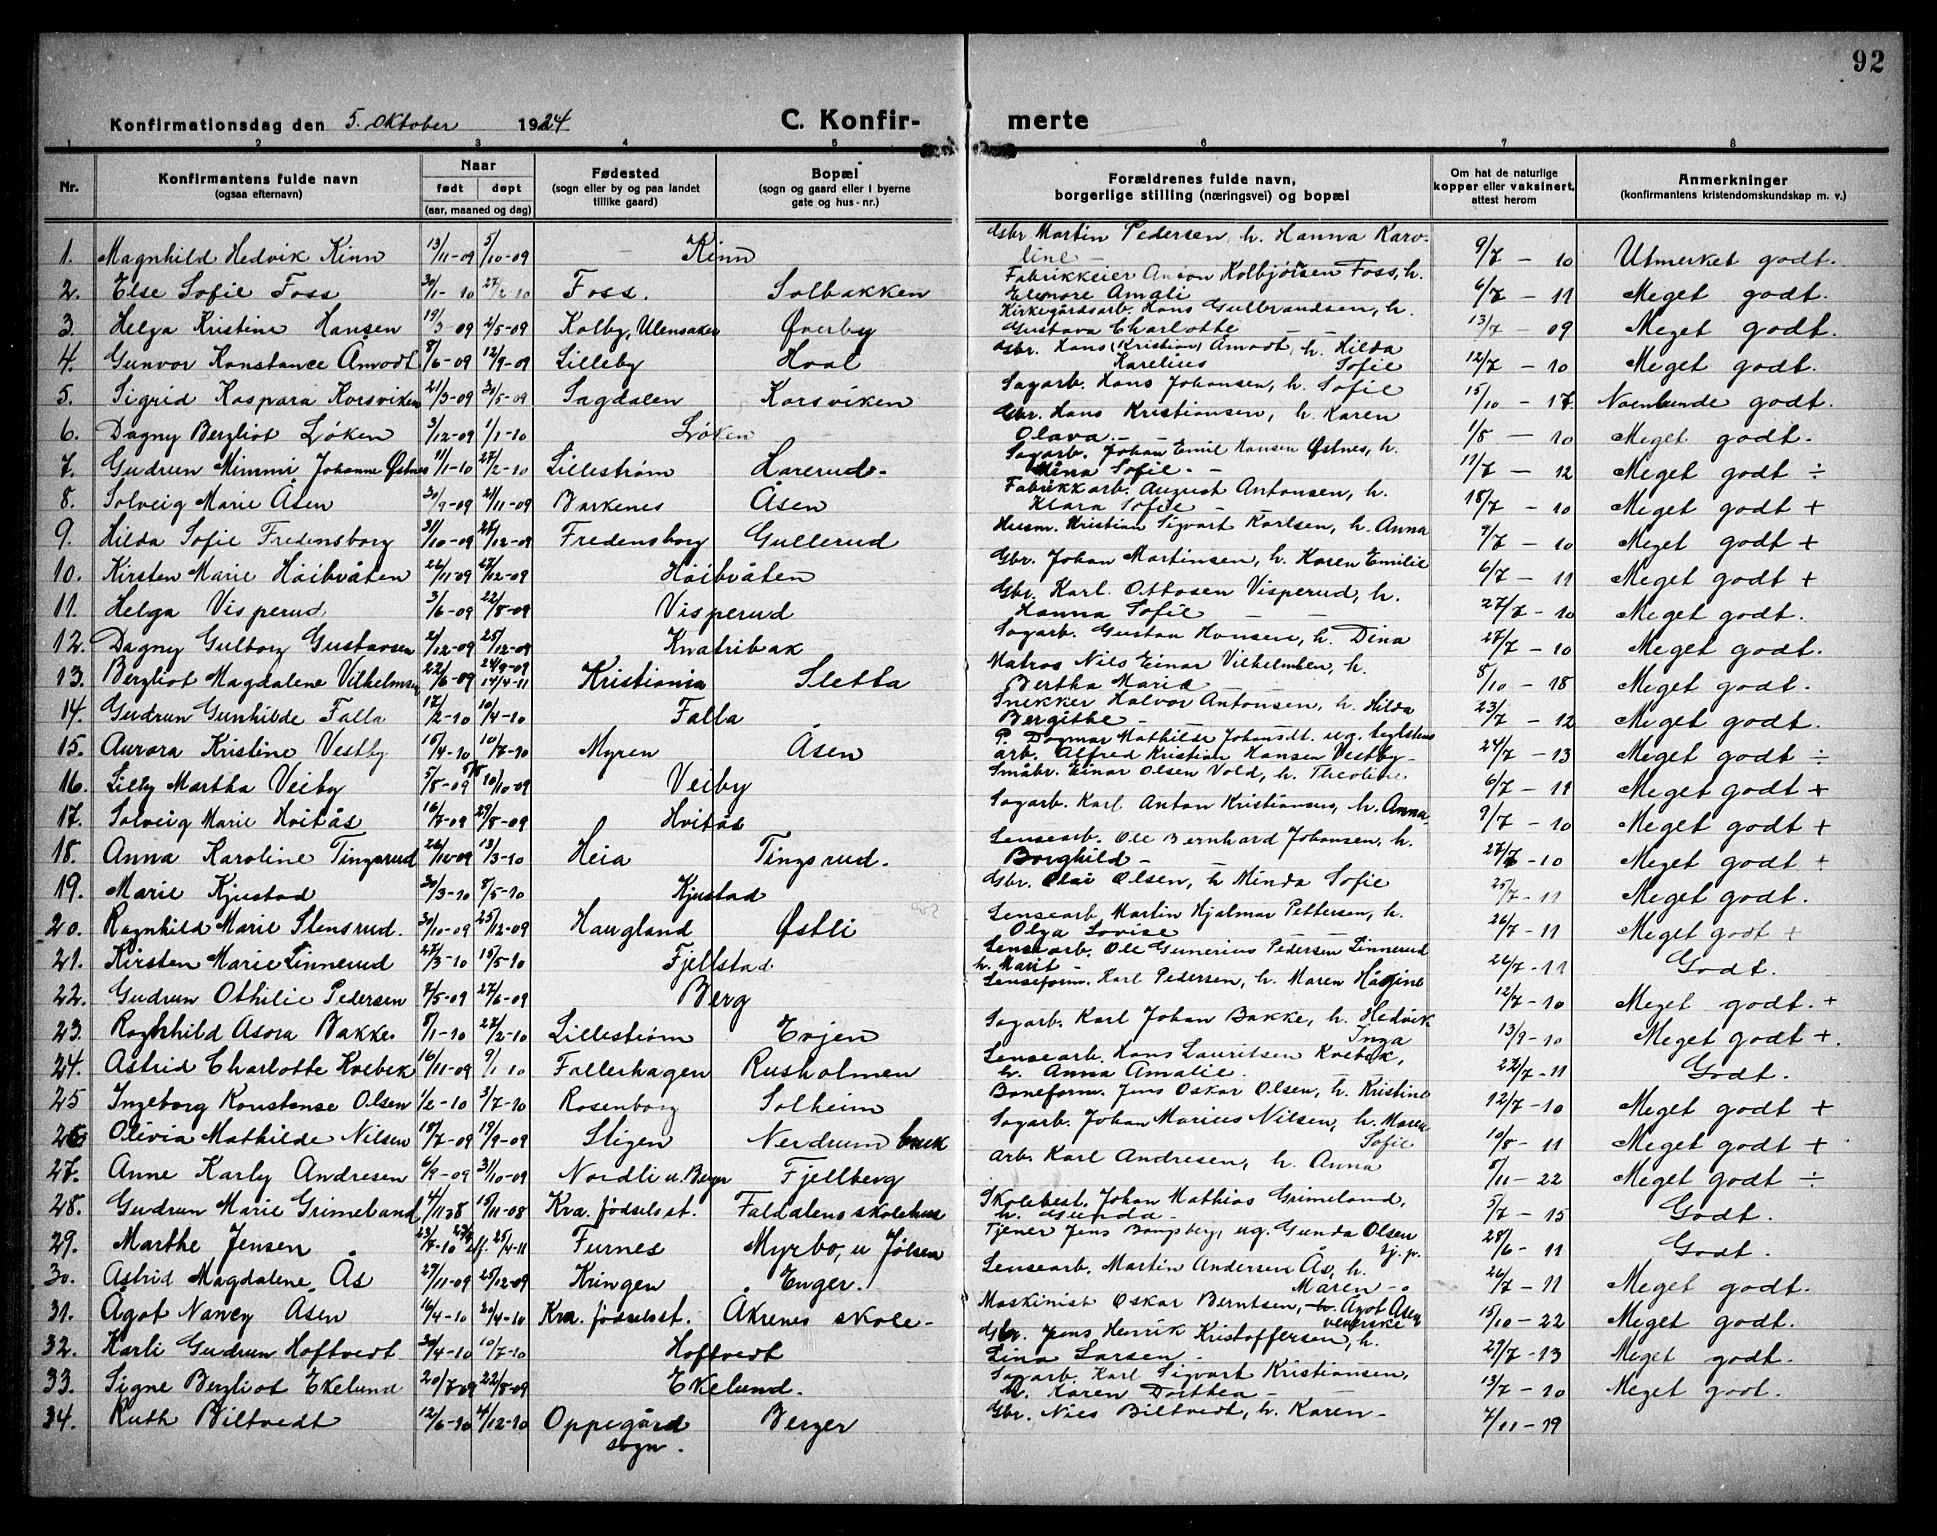 92
Konfirmationsdag den 5. oktober 1924 C. Konfir- merte
1 2 3 4 5 6 7 8
Nr. Konfirmantens fulde navn (ogsaa efternavn) Naar født døpt (aar, maaned og dag) Fødested (sogn eller by og paa landet tillike gaard) Bopæl (sogn og gaard eller i byerne gate og hus-nr.) Forældrenes fulde navn, borgerlige stilling (næringsvei) og bopæl Om hat de naturlige kopper eller vaksinert, attest herom Anmerkninger (konfirmantens kristendomskundskap m. v.)
1. Magnhild Hedvik Kinn 13/11-09 5/10-09 Kinn Gbr. Martin Pedersen, h. Hanna Karoline 9/7 - 10 Utmerket godt.
2. Else Sofie Foss 30/1-10 27/2-10 Foss. Solbakken Fabrikkeier Anton Kolbjørsen Foss, h. Elenore Amali 6/7 - 11 Meget godt.
3. Helga Kristine Hansen 19/3 09 2/5-09 Kolby, Ulensaker Øverby Kirkegårdsarb. Hans Gulbrandsen, h. Gustava Charlotte 13/7 - 09 Meget godt.
4. Gunvor Konstance Åmodt 8/6-09 12/9-09 Lilleby Hoal Gbr. Hans (Kristian) Karelius Åmodt, h. Hilda Sofie 12/7 - 10 Meget godt.
5. Sigrid Kaspara Korsviken 21/3-09 30/5-09 Sagdalen Korsviken Sagarb. Hans Johansen, h. Sofie 15/10 - 17. Noenlunde godt.
6. Dagny Bergliot Løken 3/12-09 1/1-10 Løken Gbr. Hans Kristiansen, h. Karen Olava 1/8 - 10 Meget godt.
7. Gudrun Mimmi Johanne Østnes 11/1-10 27/2-10 Lillestrøm Harerud Sagarb. Johan Emil Hansen Østnes, h. Mina Sofie 11/7 - 12 Meget godt ÷
8. Solveig Marie Åsen 30/9-09 21/11-09 Barkenes Åsen Fabrikkarb. August Antonsen, h. Klara Sofie 18/7 - 10 Meget godt +
9. Hilda Sofie Fredensborg 31/10-09 27/12-09 Fredensborg Gullerud Husm. Kristian Sigvart Karlsen, h. Anna 9/7 - 10 Meget godt +
10. Kirsten Marie Høibråten 26/11-09 27/12-09 Høibråten Gbr. Johan Martinsen, h. Karen Emilie 6/7 - 11 Meget godt +
11. Helga Visperud 3/6-09 22/8-09 Visperud Gbr. Karl Ottosen Visperud, h. Hanna Sofie 27/7 - 10 Meget godt.
12. Dagny Gulborg Gustavsen 2/12-09 25/12-09 Knatribak Sagarb. Gustav Hansen, h. Dina 27/7 - 10 Meget godt.
13. Bergliot Magdalene Vilhelmsen 22/6-09 24/9-09 14/4-11 Kristiania Sletta Matros Nils Einar Vilhelmsen, h. Bertha Maria 8/10 - 18 Meget godt.
14. Gudrun Gunhilde Falla 17/2-10 10/4-10 Falla Snekker Halvor Antonsen, h. Hilda Bergithe 23/7 - 12 Meget godt.
15. Aurora Kristine Vestby 15/4-10 10/7-10 Myren Åsen P. Dagmar Mathilde Johansdt. ug. teglstens arb. Alfred Kristian Hansen Vestby 24/7 - 13 Meget godt ÷
16. Lilly Martha Veiby 5/8-09 10/10-09 Veiby Småbr. Einar Olsen Vold, h. Theoline 6/7 - 11 Meget godt +
17. Solveig Marie Hvitås 16/7-09 29/8-09 Hvitås Sagarb. Karl Anton Kristiansen, h. Anna 9/7 - 10 Meget godt +
18. Anna Karoline Tingsrud 26/12-09 13/3-10 Heia Tingsrud. Lensearb. Ole Bernhard Johansen, h. Borghild 27/7 - 10 Meget godt +
19. Marie Kjustad 30/3-10 8/5-10 Kjustad Gbr. Olai Olsen, h Minda Sofie 25/7 - 11 Meget godt.
20. Ragnhild Marie Stensrud. 30/10-09 25/12-09 Haugland Østli Lensearb Martin Hjalmar Pettersen, h. Olga Lovise 26/7 - 11 Meget godt +
21. Kirsten Marie Linnerud 27/3-10 15/5-10 Fjellstad Lensearb. Ole Gunerius Pedersen Linnerud h. Marit 26/7 - 11 Godt.
22. Gudrun Othilie Pedersen 7/5-09 27/6-09 Berg Lenseform. Karl Pedersen, h. Maren Hågine 12/7 - 10 Meget godt. +
23. Ragnhild Asora Bakke 8/1-10 27/2-10 Lillestrøm Evjen Sagarb. Karl Johan Bakke, h. Hedvik Inga 13/9 - 10 Meget godt +.
24. Astrid Charlotte Kvebek 16/11-09 9/1 10 Fallerhagen Rusholmen Lensearb. Hans Lauritsen Kvebek, h. Anna Amalie. 22/7 - 11 Godt.
25 Ingeborg Konstanse Olsen 1/2-10 3/7-10 Rosenborg Solheim Baneform. Jens Oskar Olsen, h. Kristine 12/7 - 10 Meget godt +
26 Olivia Mathilde Nilsen 18/7-09 19/9-09 Stigen Nerdrum bruk Sagarb. Johan Marius Nilsen, h. Maren Sofie 10/8 - 11 Meget godt +
27. Anne Karly Andresen 6/9-09 31/10-09 Nordli u. Berger Fjellberg arb. Karl Andresen, h. Anna 8/11 - 22 Meget godt ÷
28. Gudrun Marie Grimeland 4/11 08 15/11-08 Kra. fødselsst. Faldalens skolehus Skolebest. Johan Mathias Grimeland, h. Gunda 5/7 - 15 Godt.
29. Marthe Jensen 23/7-10 25/4-11 Furnes Myrbo, u Jølsen Tjener Jens Bangsberg, ug. Gunda Olsen 28/6 - 11 Godt.
30. Astrid Magdalene Ås 27/11-09 25/12-09 Kringen Enger. Lensearb. Martin Andersen Ås, h. Maren 26/7 - 11 Meget godt.
31. Ågot Nancy Åsen 16/4-10 20/4-10 Kra. fødselsst. Åkrenes skole Maskinist Oskar Berntsen, h. Agot Åsen 15/10 - 22 Meget godt.
32. Karli Gudrun Hoftvedt 30/4-10 10/7-10 Hoftvedt Gbr. Jens Henrik Kristoffersen, h. Lina Larsen 29/7 - 13 Meget godt.
33. Signe Bergliot Ekelund 20/7-09 22/8-09 Ekelund. Sagarb. Karl Sigvart Kristiansen, h. Karen Dorthea 13/7 - 10 Meget godt.
34. Ruth Biltvedt 12/6-10 4/12-10 Oppegård sogn. Berger Gbr. Nils Biltvedt, h. Karen 7/11 - 19